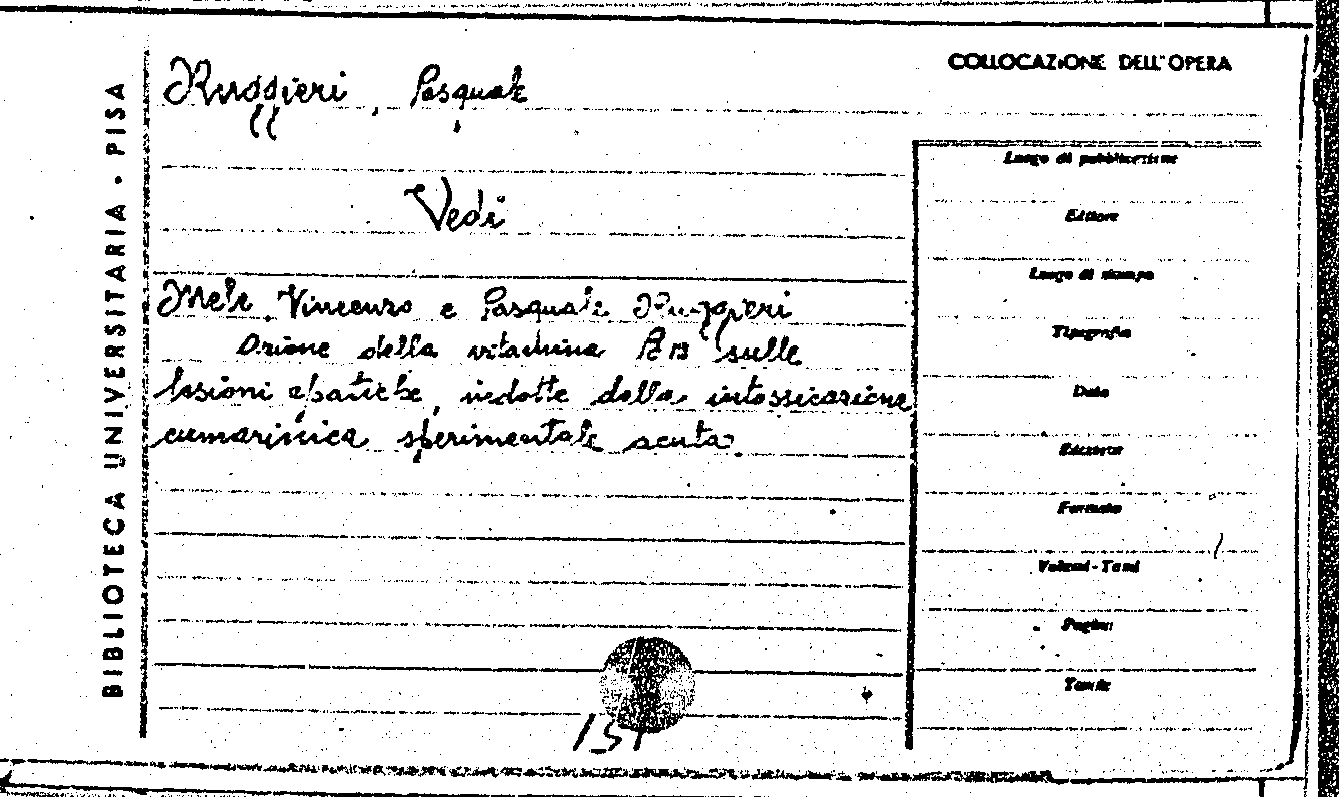 BIBLIOTECA UNIVERSITARIA - PISA
COLLOCAZIONE DELL'OPERA
Ruggieri, Pasquale
Vedi
Mele Vincenzo e Pasquale Ruggieri
Azione della vitamina B 12 sulle
lesioni epatiche, indotte dalla intossicazione
cumarinica sperimentale acuta.
151
Luogo di pubblicazione
Editore
Luogo di stampa
Tipografia
Data
Edizione
Formato
Volumi - Tomi
Pagine
Tavole